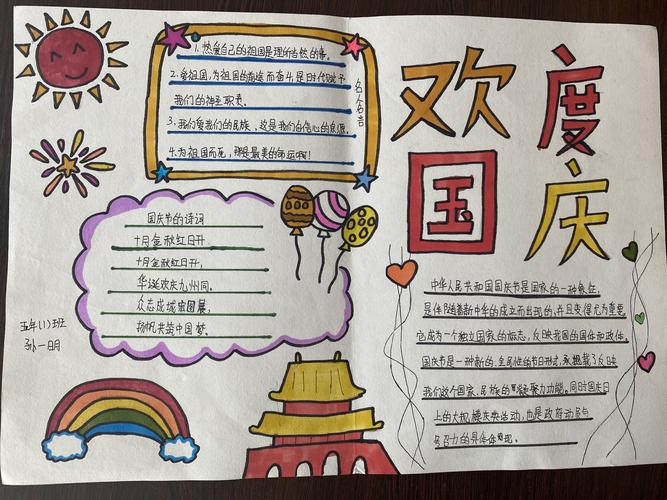 1. 热爱自己的祖国是理所当然的事。
2. 爱祖国,为祖国的前途而奋斗,是时代赋予
我们的神圣职责。
3. 我们爱我们的民族,这是我们自信心的泉源。
4. 为祖国而死,那是最美的命运啊!
名人名言
欢度
国庆
国庆节的诗词
十月金秋红日开,
十月金秋红日开,
华诞欢庆九州同。
众志成城宏图展,
扬帆共筑中国梦。
五年(1)班
孙一明
中华人民共和国国庆节是国家的一种象征,
是伴随着新中华的成立而出现的,并且变得尤为重要
它成为一个独立国家的标志,反映我国的国体和政体。
国庆节是一种新的、全民性的节日形式,承载了反映
我们这个国家、民族的凝聚力功能。同时国庆日
上的大规模庆典活动,也是政府动员与
号召力的具体体现。